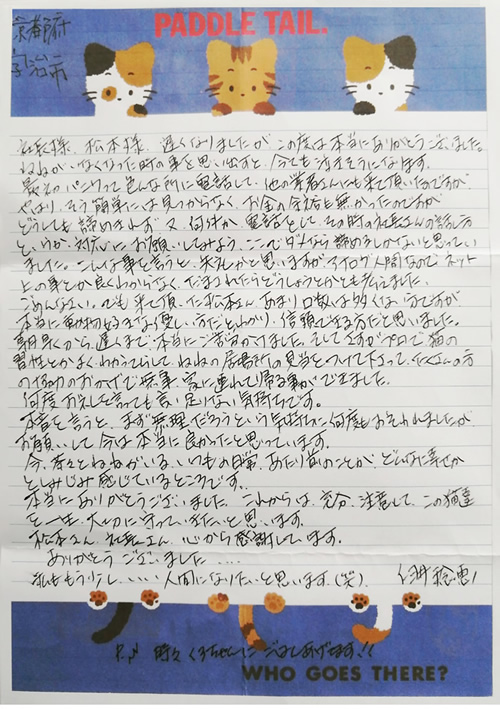 PADDLE TAIL.
京都府
宇治市
社長様、松本様、遅くなりましたが この度は本当にありがとうございました。
ねねがいなくなった時の事を思い出すと、今でも泣きそうになります。
最初パニクって色んな所に電話して、他の業者さんにも来て頂いたのですが
やはり、そう簡単には見つからなく、お金の余裕も無かったのですが
どうしても諦めきれず 又、何件か 電話をして、その時の社長さんの話し方
というか、対応に お願いしてみよう、ここでダメなら諦めるしかないと思ってい
ました。こんな事を言うと、失礼かと思いますがアナログ人間なので ネット
上の事とか良くわからなく、だまされたらどうしようとかとも考えました。
ごめんなさい。でも 来て頂いた松本さん あまり口数は多くないですが
本当に動物好きな優しい方だとわかり、信頼できる方だと思いました。
朝早くから、遅くまで、本当にご苦労かけました。そして さすがプロで 猫の
習性とかよくわかってらして、ねねの居場所の見当をつけて下さって、たくさんの方
の協力のおかげで無事、家に連れて帰る事ができました。
何度お礼を言っても言い足りない気持ちです。
本音を言うと、まず無理だろうという気持ちに何度もおそわれましたが
お願いして今は本当に良かったと思っています。
今、奈々とねねがいる、いつもの日常、あたり前のことが、どんなに幸せか
としみじみ感じているところです。
本当にありがとうございました。これからは、充分、注意して、この猫達
を一生、大切に守っていきたいと思います。
松本さん、社長さん、心から感謝しています。
ありがとう ございました....
私ももう少し、....人間になりたいと思います。(笑)
P.S 時々 くろちゃんに ごはんあげてます!!
WHO GOES THERE?